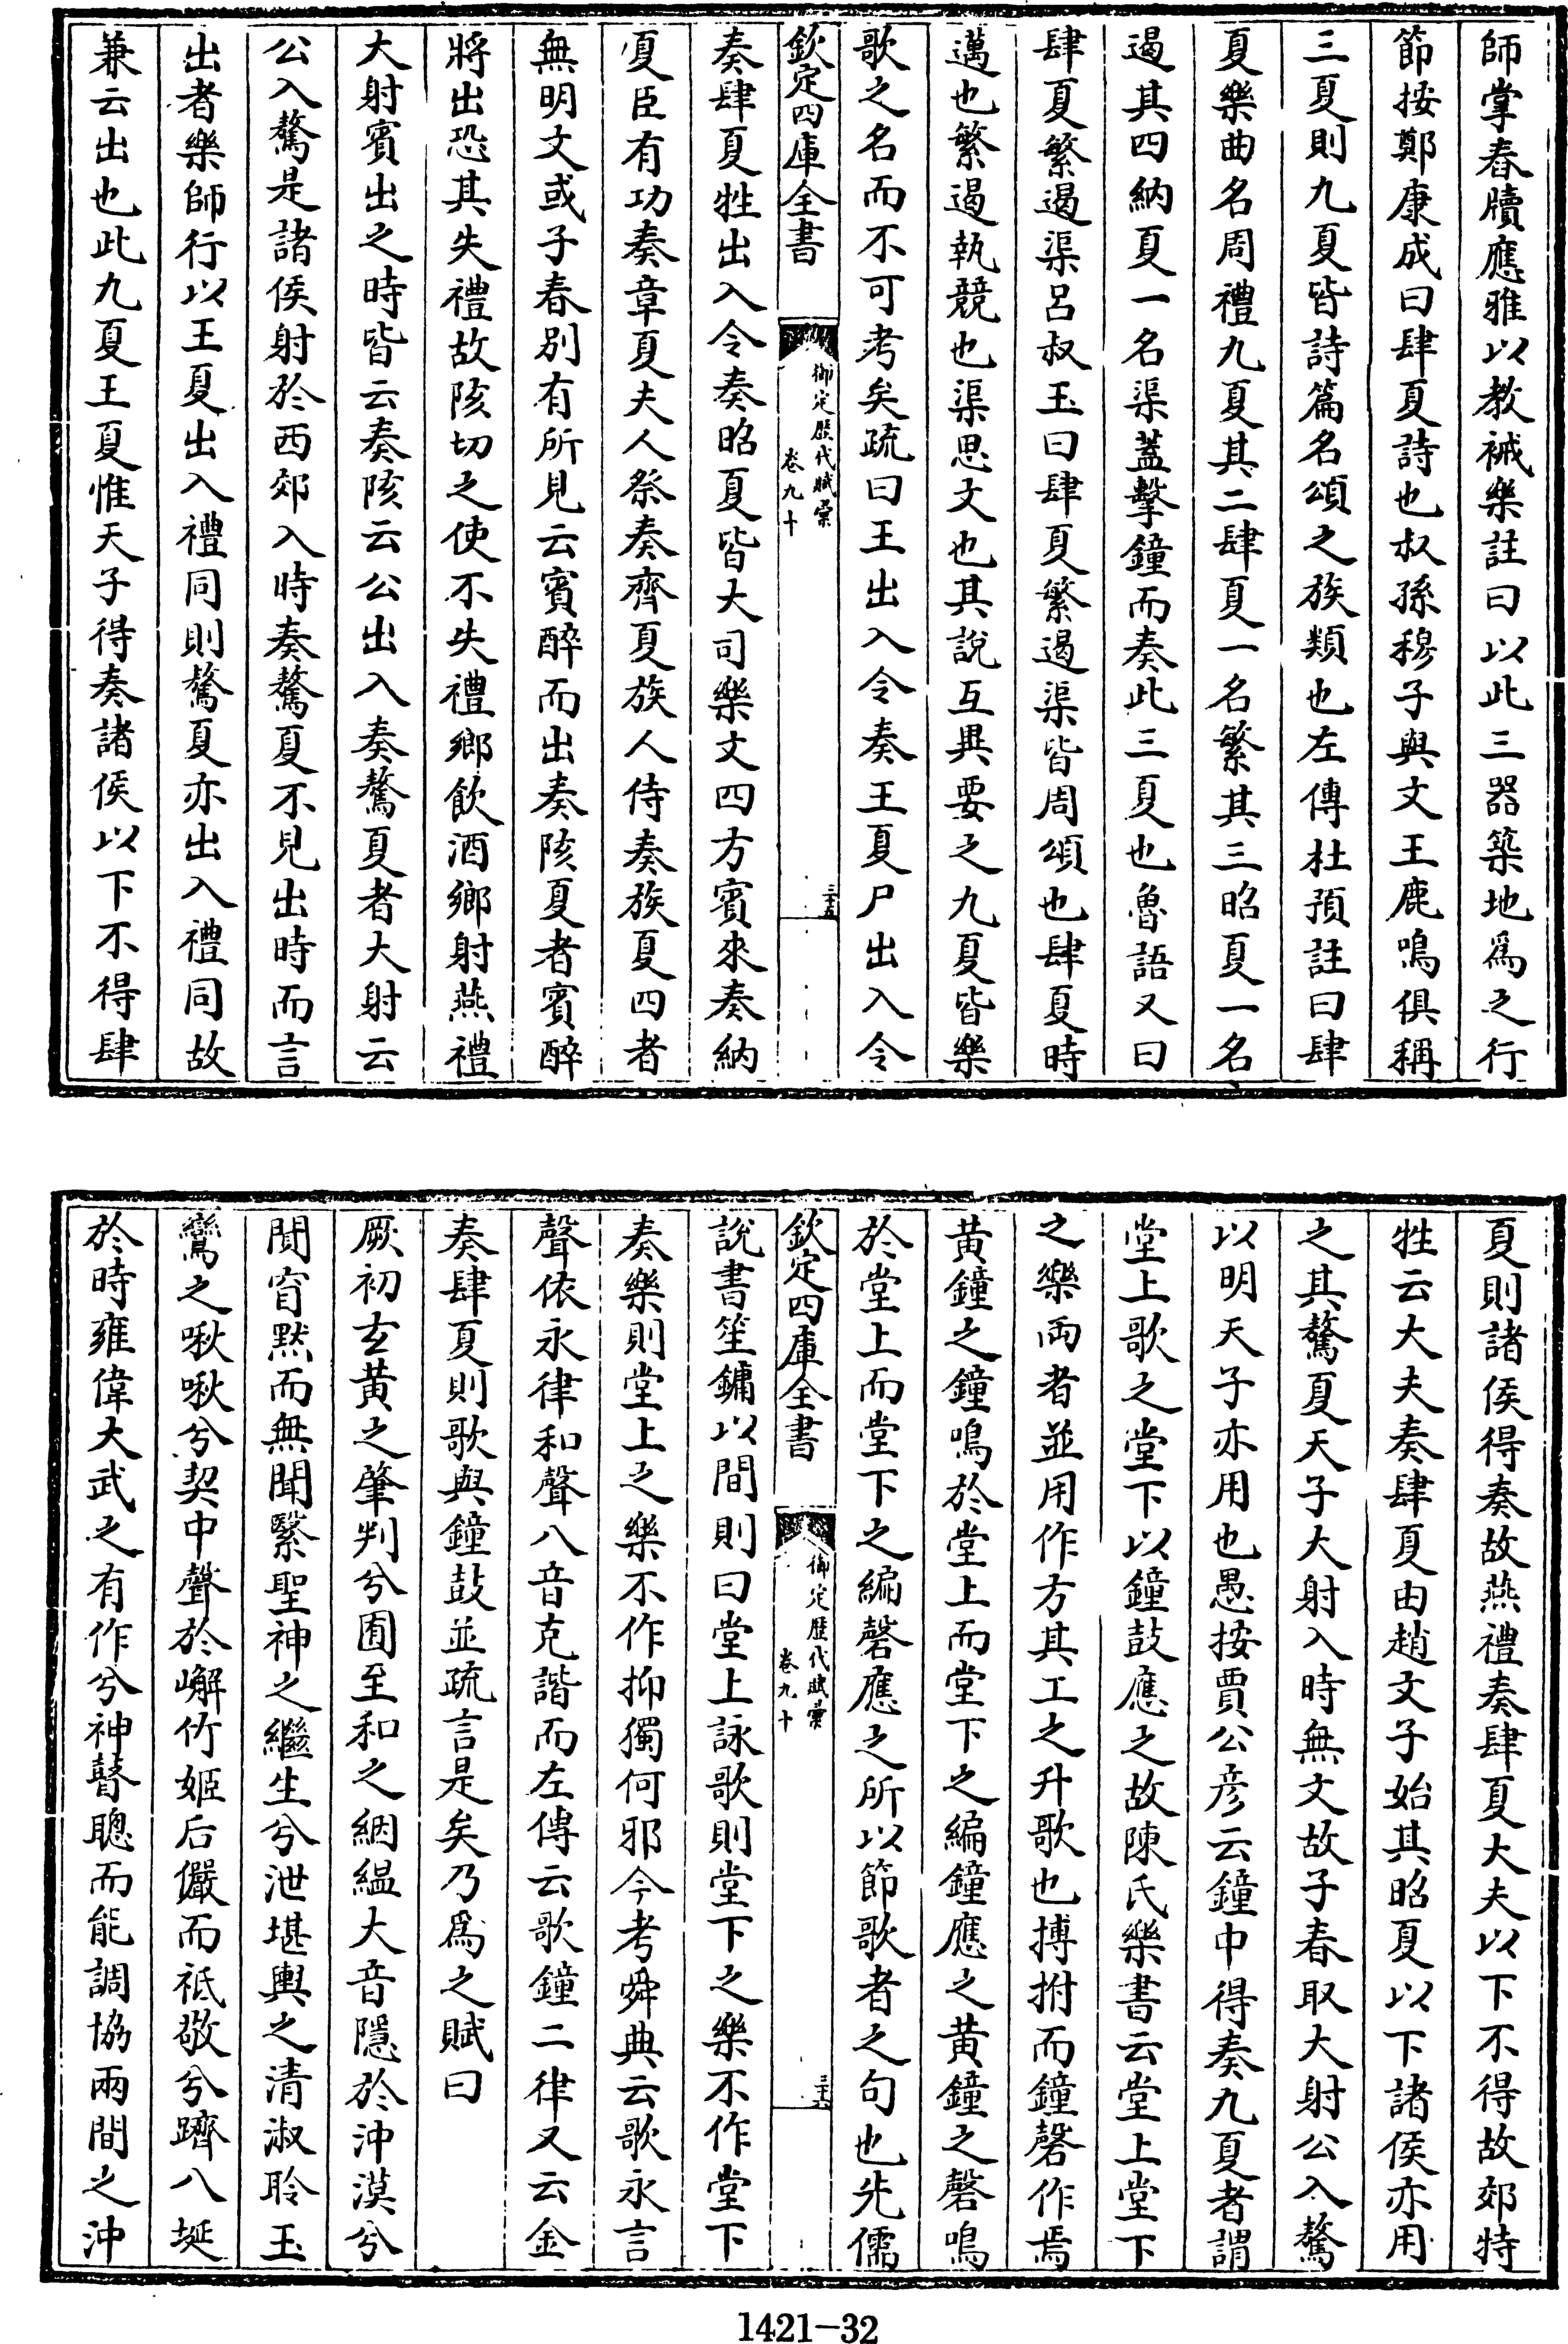 師掌舂牘應雅以教祴樂註曰以此三器築地爲之行
節按鄭康成曰肆夏詩也叔孫穆子與文王鹿鳴俱稱
三夏則九夏皆詩篇名頌之族類也左傳杜預註曰肆
夏樂曲名周禮九夏其二肆夏一名繁其三昭夏一名
遏其四納夏一名渠蓋擊鐘而奏此三夏也魯語又曰
肆夏繁遏渠呂叔玉曰肆夏繁遏渠皆周頌也肆夏時
邁也繁遏執競也渠思文也其說互異要之九夏皆樂
歌之名而不可考矣疏曰王出入令奏王夏尸出入令
欽定四庫全書
御定歷代賦彙
卷九十
三十五
奏肆夏牲出入令奏昭夏皆大司樂文四方賓來奏納
夏臣有功奏章夏夫人祭奏齊夏族人侍奏族夏四者
無明文或子春別有所見云賓醉而出奏陔夏者賓醉
將出恐其失禮故陔切之使不失禮鄉飲酒鄉射燕禮
大射賓出之時皆云奏陔云公出入奏驁夏者大射云
公入驁是諸侯射於西郊入時奏驁夏不見出時而言
出者樂師行以王夏出入禮同則驁夏亦出入禮同故
兼云出也此九夏王夏惟天子得奏諸侯以下不得肆
夏則諸侯得奏故燕禮奏肆夏大夫以下不得故郊特
牲云大夫奏肆夏由趙文子始其昭夏以下諸侯亦用
之其驁夏天子大射入時無文故子春取大射公入驁
以明天子亦用也愚按賈公彥云鐘中得奏九夏者謂
堂上歌之堂下以鐘鼓應之故陳氏樂書云堂上堂下
之樂兩者並用作方其工之升歌也搏拊而鐘磬作焉
黃鐘之鐘鳴於堂上而堂下之編鐘應之黃鐘之磬鳴
於堂上而堂下之編磬應之所以節歌者之句也先儒
欽定四庫全書
御定歷代賦彙
卷九十
三十六
說書笙鏞以間則曰堂上詠歌則堂下之樂不作堂下
奏樂則堂上之樂不作抑獨何邪今考舜典云歌永言
聲依永律和聲八音克諧而左傳云歌鐘二律又云金
奏肆夏則歌與鐘鼓並疏言是矣乃爲之賦曰
厥初玄黃之肇判兮囿至和之絪縕大音隱於沖漠兮
閴窅默而無聞繄聖神之繼生兮泄堪輿之清淑聆玉
鸞之啾啾兮契中聲於嶰竹姬后儼而祗敬兮躋八埏
於時雍偉大武之有作兮神瞽聰而能調協兩間之沖
1421-32